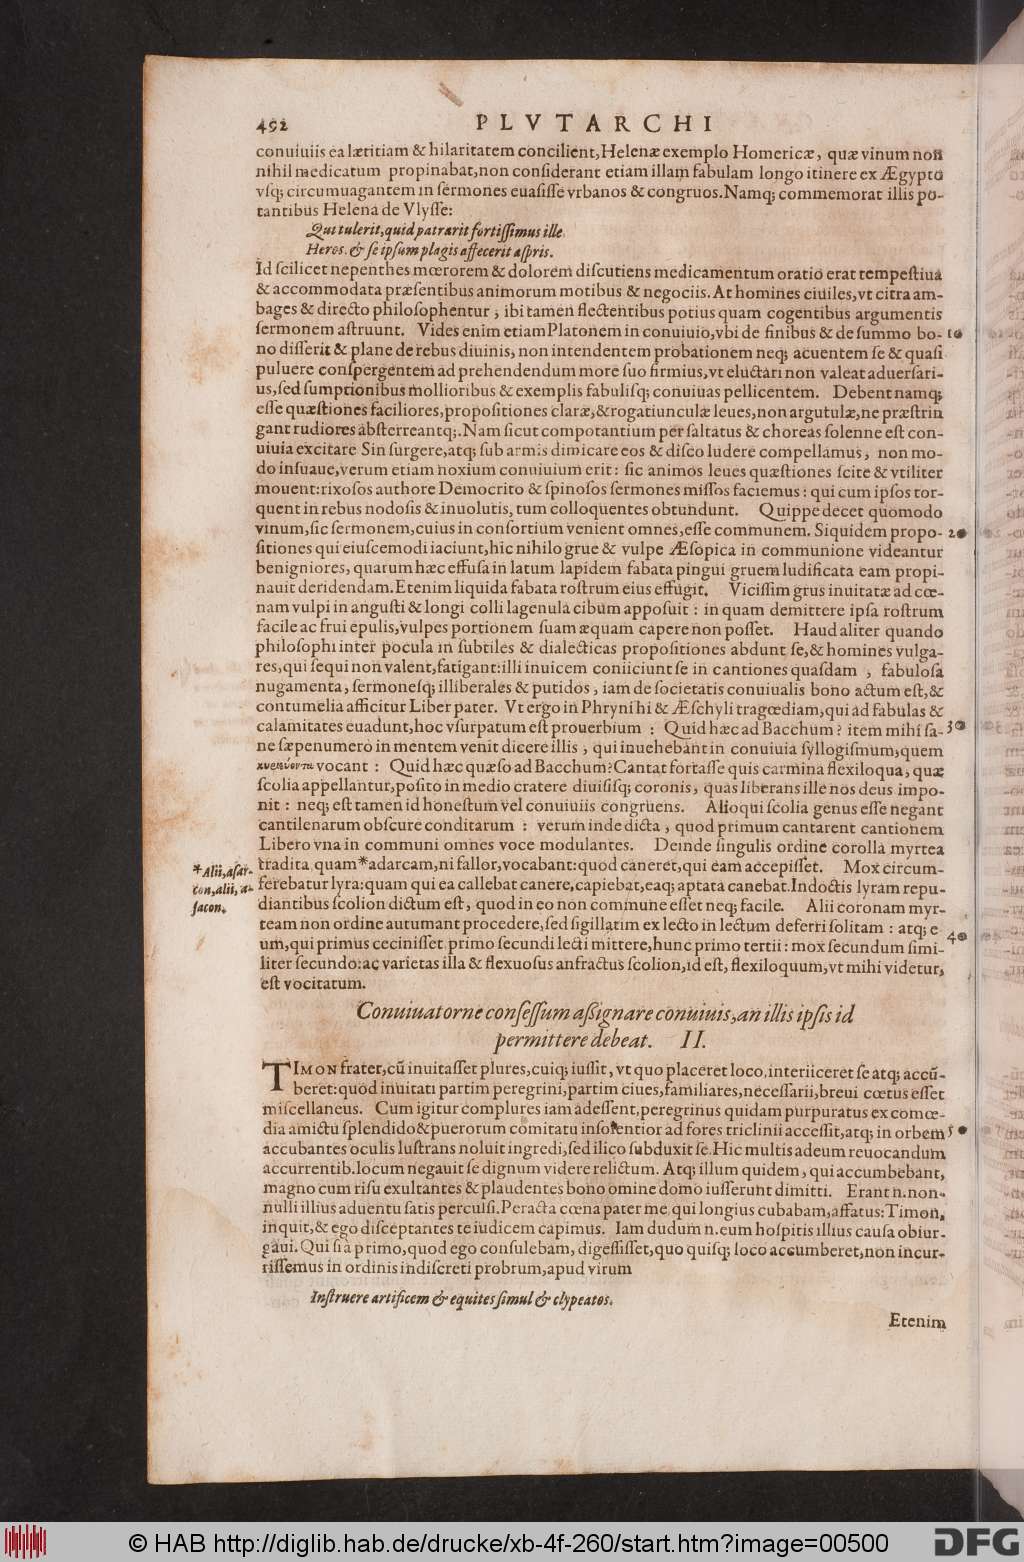 492 PLVTARCHI
conuiuiis ea lætitiam & hilaritatem concilient, Helenæ exemplo Homericæ, quæ vinum non
nihil medicatum propinabat, non considerant etiam illam fabulam longo itinere ex Ægypto
vsq; circumuagantem in sermones euasisse vrbanos & congruos. Namq; commemorat illis po-
tantibus Helena de Vlysse:
Qui tulerit, quid patrarit fortissimus ille
Heros. & se ipsum plagis affecerit aspris.
Id scilicet nepenthes mœrorem & dolorem discutiens medicamentum oratio erat tempestiua
& accommodata præsentibus animorum motibus & negociis. At homines ciuiles, vt citra am-
bages & directo philosophentur, ibi tamen flectentibus potius quam cogentibus argumentis
sermonem astruunt. Vides enim etiam Platonem in conuiuio, vbi de finibus & de summo bo- 10
no disserit & plane de rebus diuinis, non intendentem probationem neq; acuentem se & quasi
puluere conspergentem ad prehendendum more suo firmius, vt eluctari non valeat aduersari-
us, sed sumptionibus mollioribus & exemplis fabulisq; conuiuas pellicentem. Debent namq;
esse quæstiones faciliores, propositiones claræ, & rogatiunculæ leues, non argutulæ, ne præstrin
gant rudiores absterreantq;. Nam sicut compotantium per saltatus & choreas solenne est con-
uiuia excitare Sin surgere, atq; sub armis dimicare eos & disco ludere compellamus, non mo-
do insuaue, verum etiam noxium conuiuium erit: sic animos leues quæstiones scite & vtiliter
mouent: rixosos authore Democrito & spinosos sermones missos faciemus: qui cum ipsos tor-
quent in rebus nodosis & inuolutis, tum colloquentes obtundunt. Quippe decet quomodo
vinum, sic sermonem, cuius in consortium venient omnes, esse communem. Siquidem propo- 20
sitiones qui eiuscemodi iaciunt, hic nihilo grue & vulpe Æsopica in communione videantur
benigniores, quarum hæc effusa in latum lapidem fabata pingui gruem ludificata eam propi-
nauit deridendam. Etenim liquida fabata rostrum eius effugit. Vicissim grus inuitatæ ad cœ-
nam vulpi in angusti & longi colli lagenula cibum apposuit: in quam demittere ipsa rostrum
facile ac frui epulis, vulpes portionem suam æquam capere non posset. Haud aliter quando
philosophi inter pocula in subtiles & dialecticas propositiones abdunt se, & homines vulga-
res, qui sequi non valent, fatigant: illi inuicem coniiciunt se in cantiones quasdam, fabulosa
nugamenta, sermonesq; illiberales & putidos, iam de societatis conuiualis bono actum est, &
contumelia afficitur Liber pater. Vt ergo in Phrynihi & Æschyli tragœdiam, qui ad fabulas &
calamitates euadunt, hoc vsurpatum est prouerbium: Quid hæc ad Bacchum? item mihi sa- 30
ne sæpenumero in mentem venit dicere illis, qui inuehebant in conuiuia syllogismum, quem
κυριεύοντα vocant: Quid hæc quæso ad Bacchum? Cantat fortasse quis carmina flexiloqua, quæ
scolia appellantur, posito in medio cratere diuisisq; coronis, quas liberans ille nos deus impo-
nit: neq; est tamen id honestum vel conuiuiis congruens. Alioqui scolia genus esse negant
cantilenarum obscure conditarum: verum inde dicta, quod primum cantarent cantionem
Libero vna in communi omnes voce modulantes. Deinde singulis ordine corolla myrtea
tradita quam *adarcam, ni fallor, vocabant: quod caneret, qui eam accepisset. Mox circum-
*Alii, asar-
con, alii, a-
sacon.
ferebatur lyra: quam qui ea callebat canere, capiebat, eaq; aptata canebat. Indoctis lyram repu-
diantibus scolion dictum est, quod in eo non commune esset neq; facile. Alii coronam myr-
team non ordine autumant procedere, sed sigillatim ex lecto in lectum deferri solitam: atq; e 40
um, qui primus cecinisset primo secundi lecti mittere, hunc primo tertii: mox secundum simi-
liter secundo: ac varietas illa & flexuosus anfractus scolion, id est, flexiloquum, vt mihi videtur,
est vocitatum.
Conuiuatorne consessum assignare conuiuis, an illis ipsis id
permittere debeat. II.
TIMON frater, cū inuitasset plures, cuiq; iussit, vt quo placeret loco, interiiceret se atq; accū-
beret: quod inuitati partim peregrini, partim ciues, familiares, necessarii, breui cœtus esset
miscellaneus. Cum igitur complures iam adessent, peregrinus quidam purpuratus ex comœ-
dia amictu splendido & puerorum comitatu insolentior ad fores triclinii accessit, atq; in orbem 50
accubantes oculis lustrans noluit ingredi, sed ilico subduxit se. Hic multis adeum reuocandum
accurrentib. locum negauit se dignum videre relictum. Atq; illum quidem, qui accumbebant,
magno cum risu exultantes & plaudentes bono omine domo iusserunt dimitti. Erant n. non-
nulli illius aduentu satis perculsi. Peracta cœna pater me qui longius cubabam, affatus: Timon,
inquit, & ego disceptantes te iudicem capimus. Iam dudum n. eum hospitis illius causa obiur-
gaui. Qui si a primo, quod ego consulebam, digessisset, quo quisq; loco accumberet, non incur-
rissemus in ordinis indiscreti probrum, apud virum
Instruere artificem & equites simul & clypeatos.
Etenim
© HAB http://diglib.hab.de/drucke/xb-4f-260/start.htm?image=00500
DFG